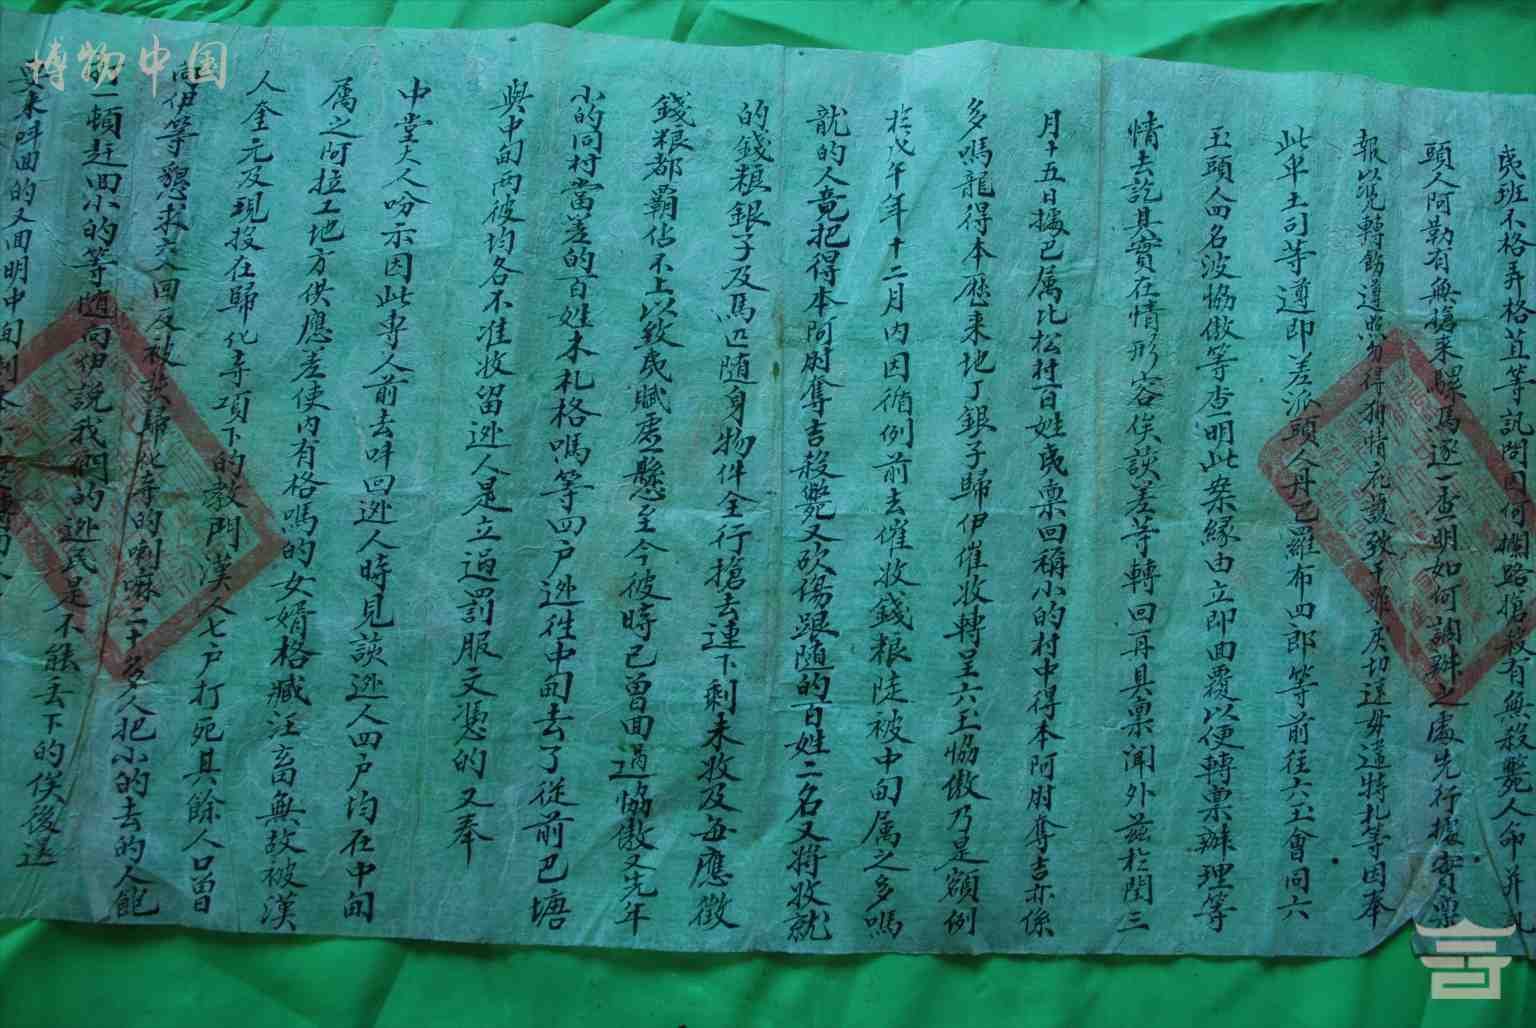 夷班不格弄格苴等訊問因何攔路搶殺有無殺斃人命并訊
頭人阿勒有無搶来騾馬逐一查明如何調辦之處先行據實稟
報以凭轉飭遵照勿得狥情庇護致干雖戾切速毋違特札等因奉
此卑土司等遵即差派頭人丹巴羅布四郎等前往六玉會同六
玉頭人四名波恊傲等查明此案緣由立即回覆以便轉稟辦理等
情去訖其實在情形容俟該差等轉回再具稟聞外茲於閏三
月十五日據巴属比松村百姓夷稟回稱小的村中得本阿尉奪吉亦係
多嗎龍得本歷来地丁銀子歸伊催收轉呈六玉恊傲乃是額例
於戊午年十二月内因循例前去催收錢粮陡被中甸属之多嗎
龍的人竟把得本阿尉奪吉殺斃又砍傷跟随的百姓二名又將收就
的錢粮銀子及馬匹随身物件全行搶去連下剩未收及每應徵
錢粮都霸佔不上以致夷賦虛懸至今彼時已曾回過恊傲又先年
小的同村當差的百姓木札格嗎等四户逃徃中甸去了從前巴塘
與中甸兩彼均各不准收留逃人是立過罰服文憑的又奉
中堂大人吩示因此專人前去呌回逃人時見該逃人四户均在中甸
属之阿拉工地方供應差使内有格嗎的女婿格臧汪畜無故被漢
人奎元及現投在歸化寺項下的教門漢人七户打死其餘人口曾
向伊等懇求交回反被歸化寺的喇嘛二十多人把小的去的人飽
一頓赶回小的等随向伊説我們的逃民是不能丢下的俟後送
具来呌回的又回明中甸